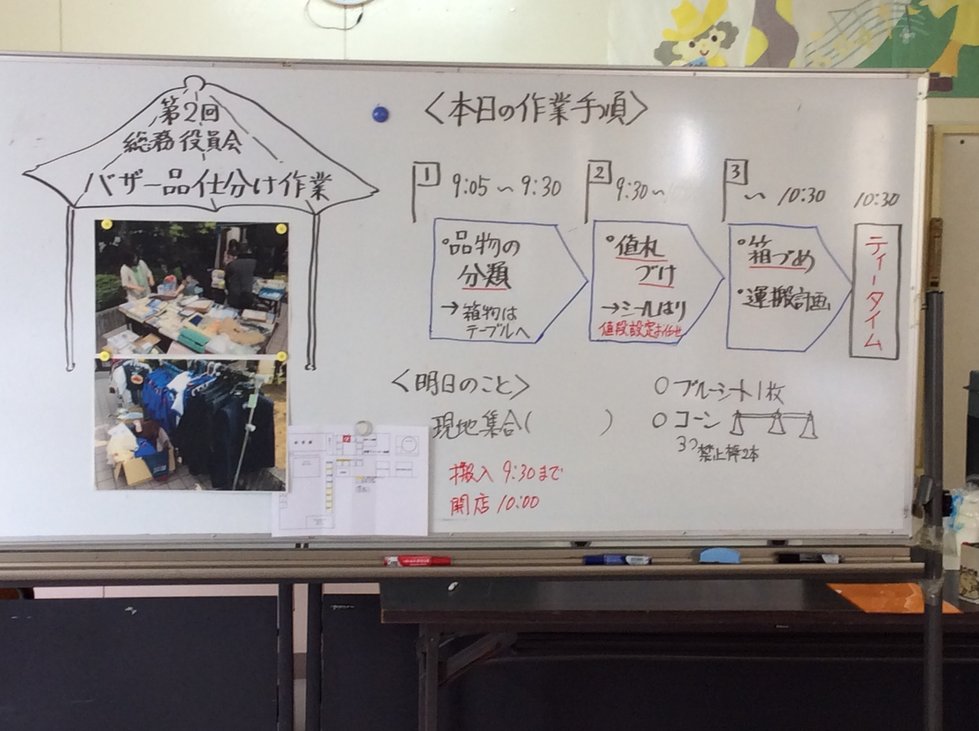 第2回
総務役員会
バザー品仕分け作業
〈本日の作業手順〉
1 9:05〜9:30
2 9:30〜
3 〜10:30
10:30
・品物の
分類
→箱物は
テーブルへ
・値札
づけ
→シールはり
値段設定お任せ
・箱づめ
・運搬計画
ティータイム
〈明日のこと〉
現地集合(　　　)
搬入 9:30まで
開店 10:00
○ブルーシート1枚
○コーン
3つ 禁止棒2本